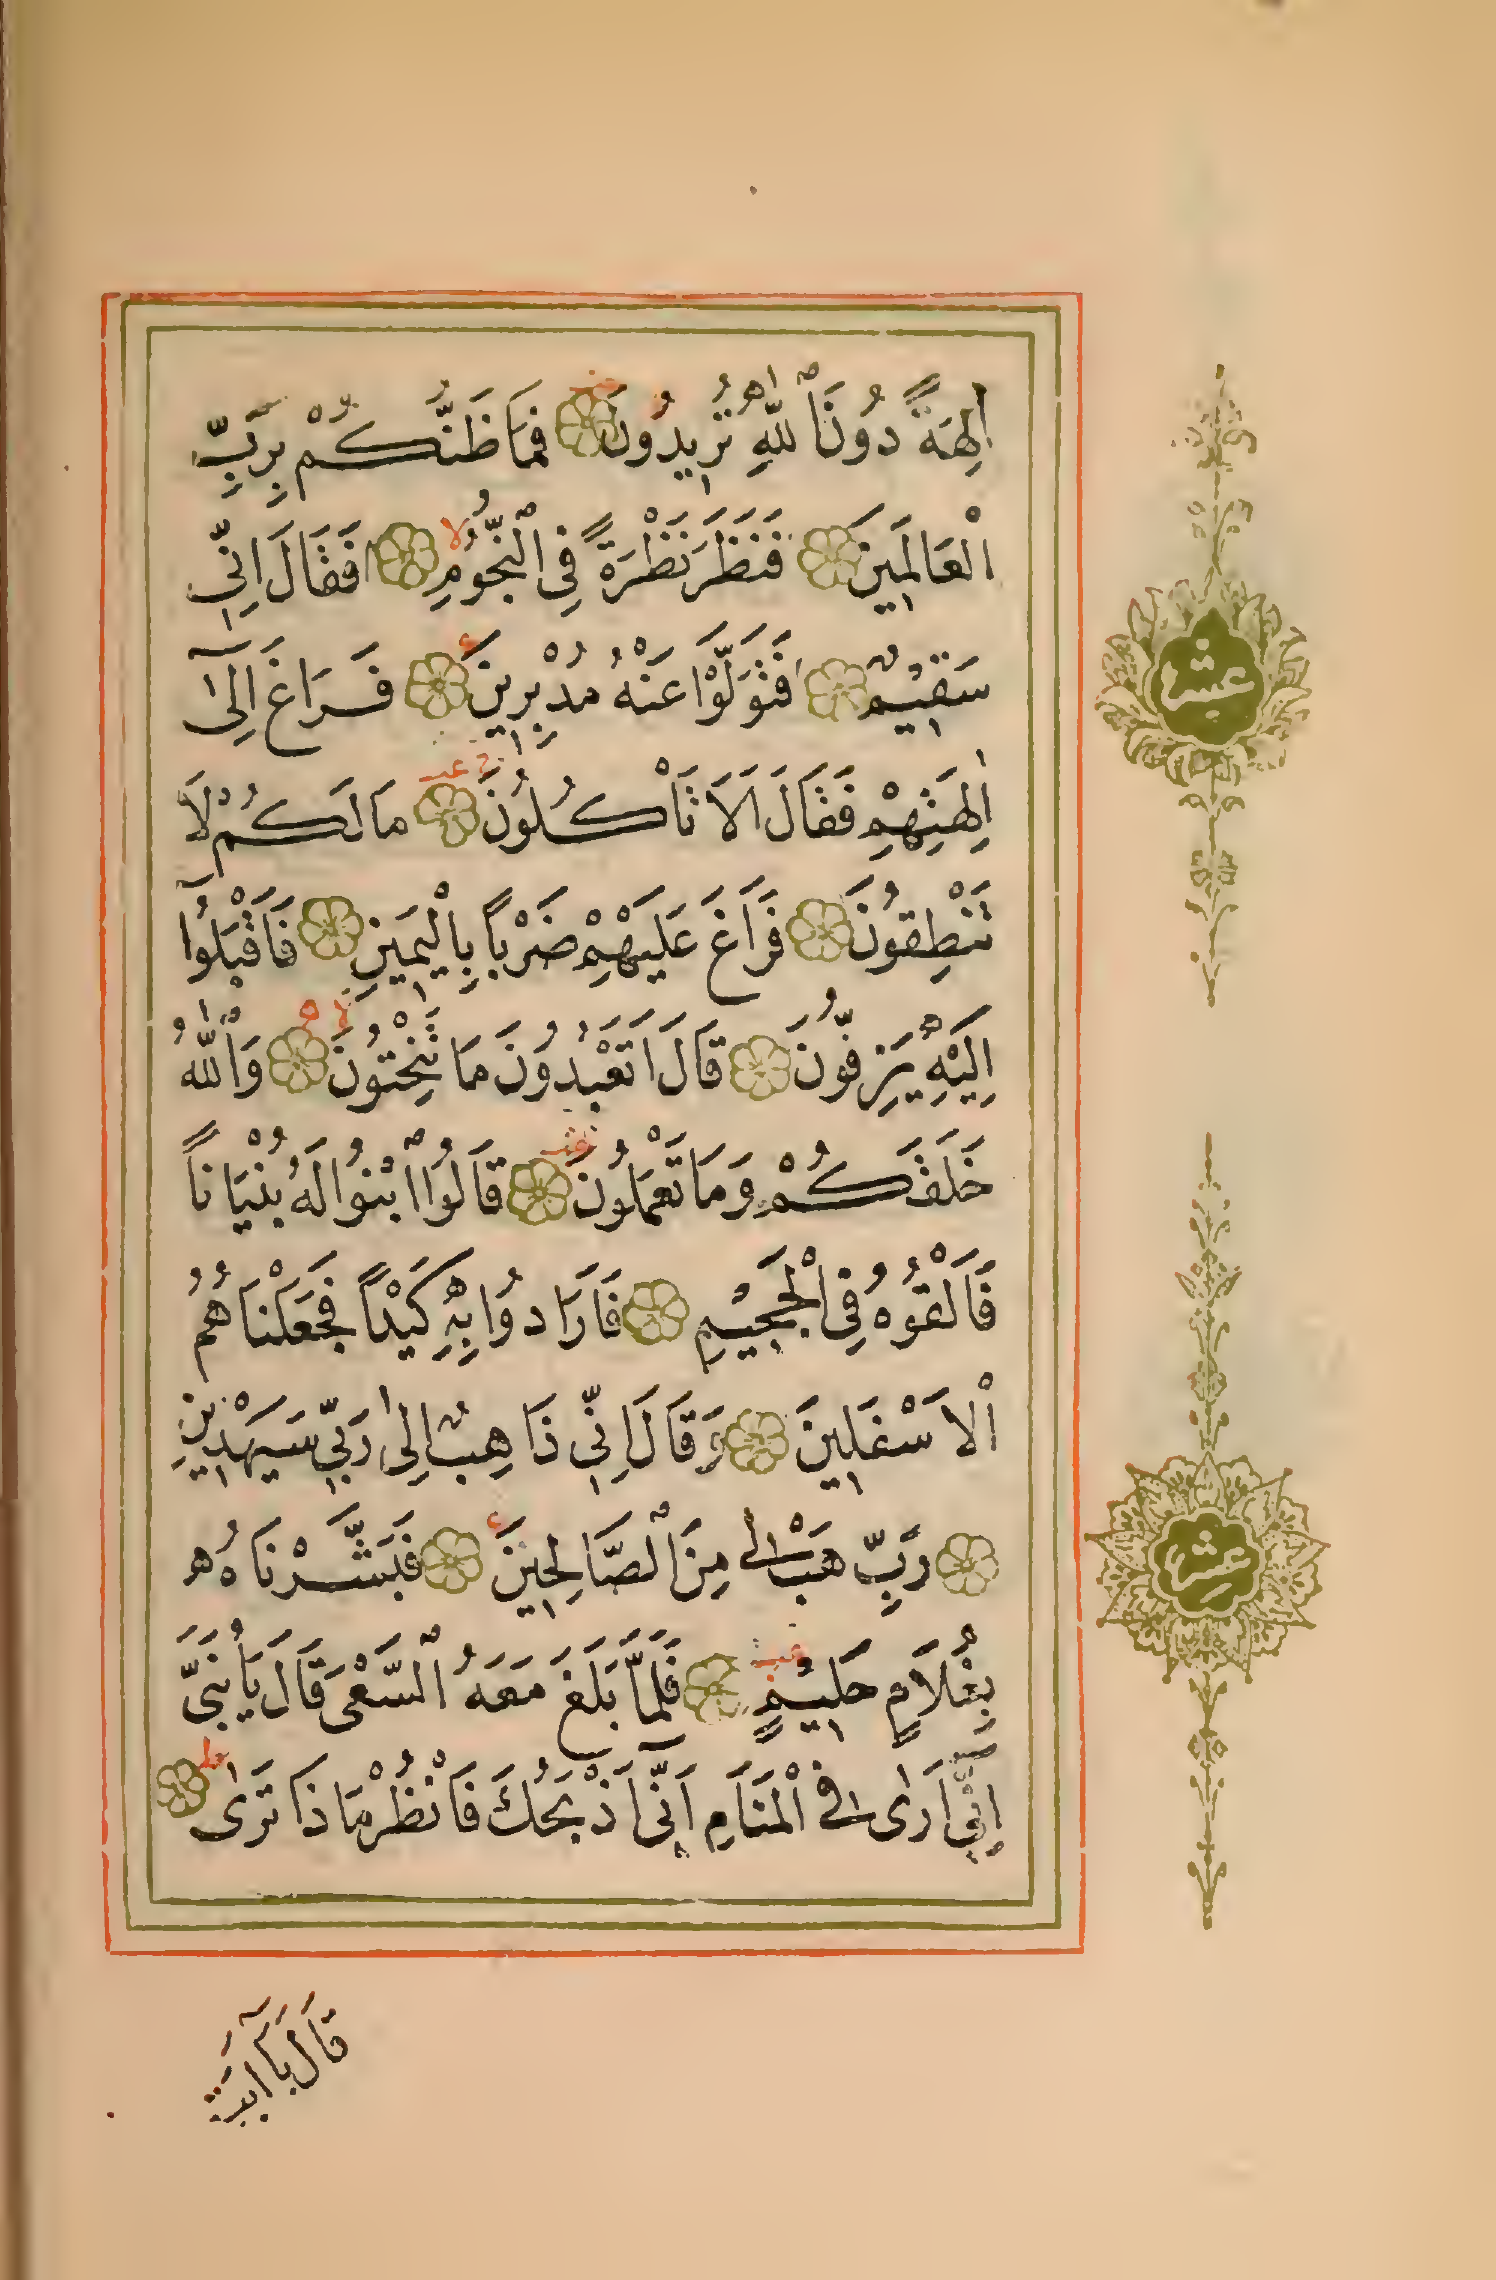 اٰلِهَةً دُونَ ٱللّٰهِ تُرِيدُونَ فَمَا ظَنُّكُمْ بِرَبِّ
الْعَالَمِينَ فَنَظَرَ نَظْرَةً فِى ٱلنُّجُومِ فَقَالَ اِنِّى
سَقِيمٌ فَتَوَلَّوْا عَنْهُ مُدْبِرِينَ فَرَاغَ اِلٰٓى
اٰلِهَتِهِمْ فَقَالَ اَلَا تَأْكُلُونَ مَا لَكُمْ لَا
تَنْطِقُونَ فَرَاغَ عَلَيْهِمْ ضَرْباً بِالْيَمِينِ فَاَقْبَلُوٓا
اِلَيْهِ يَزِفُّونَ قَالَ اَتَعْبُدُونَ مَا تَنْحِتُونَ وَٱللّٰهُ
خَلَقَكُمْ وَمَا تَعْمَلُونَ قَالُوا ٱبْنُوا لَهُ بُنْيَاناً
فَاَلْقُوهُ فِى الْجَحِيمِ فَاَرَادُوا بِهِ كَيْداً فَجَعَلْنَاهُمُ
الْاَسْفَلِينَ وَقَالَ اِنِّى ذَاهِبٌ اِلٰى رَبِّى سَيَهْدِينِ
رَبِّ هَبْ لِى مِنَ ٱلصَّالِحِينَ فَبَشَّرْنَاهُ
بِغُلَامٍ حَلِيمٍ فَلَمَّا بَلَغَ مَعَهُ ٱلسَّعْىَ قَالَ يَا بُنَىَّ
اِنِّٓى اَرٰى فِى الْمَنَامِ اَنِّٓى اَذْبَحُكَ فَانْظُرْ مَاذَا تَرٰى
قَالَ يَٓا اَبَتِ
عشر
عشر